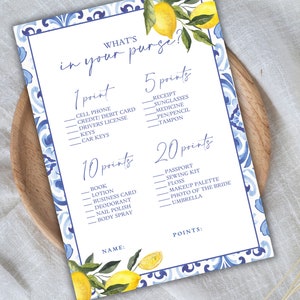 WHAT'S
in your purse?
1 point
__ CELL PHONE
__ CREDIT/ DEBIT CARD
__ DRIVERS LICENSE
__ KEYS
__ CAR KEYS
5 points
__ RECEIPT
__ SUNGLASSES
__ MEDICINE
__ PEN/PENCIL
__ TAMPON
10 points
__ BOOK
__ LOTION
__ BUSINESS CARD
__ DEODORANT
__ NAIL POLISH
__ BODY SPRAY
20 points
__ PASSPORT
__ SEWING KIT
__ FLOSS
__ MAKEUP PALETTE
__ PHOTO OF THE BRIDE
__ UMBRELLA
NAME:
POINTS: